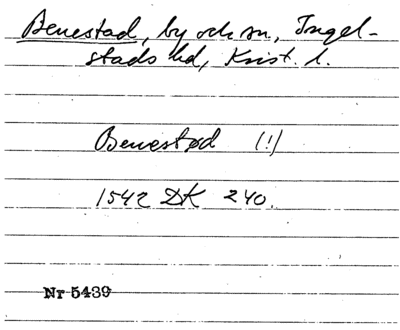 Benestad, by och sn, Ingel-
stads hd, Krist. l.
Benestød (!)
1542 DK 240.
Nr 5439